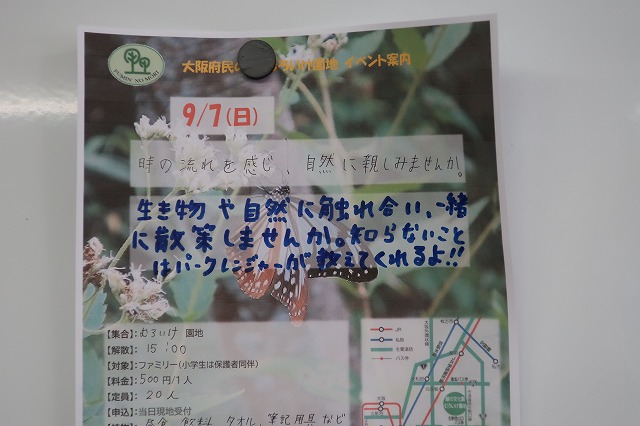 FUMIN NO MORI
大阪府民の 園地 イベント案内
9/7(日)
時の流れを感じ、自然に親しみませんか。
生き物や自然に触れ合い、一緒
に散策しませんか。知らないこと
はパークレンジャーが教えてくれるよ!!
【集合】:むろいけ 園地
【解散】:15:00
【対象】:ファミリー(小学生は保護者同伴)
【料金】:500円/1人
【定員】:20人
【申込】:当日現地受付
昼食、飲料、タオル、筆記用具など
JR
私鉄
主要道路
バス停